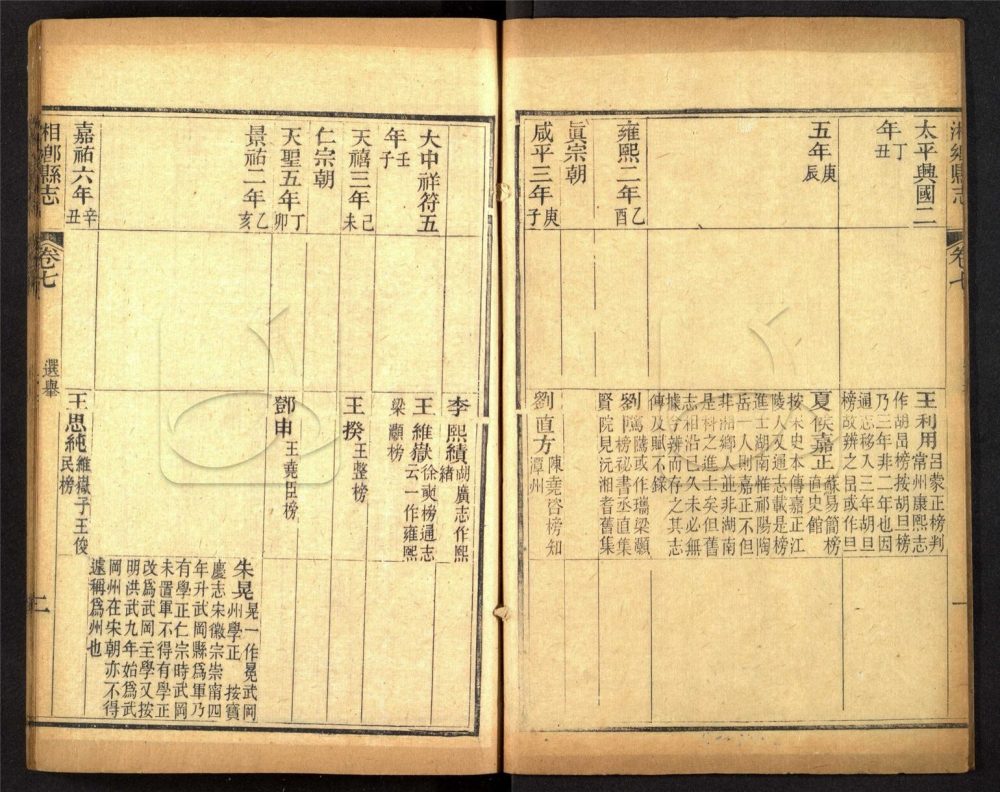 湘鄉縣志
卷七
一
太平興國二
年丁丑
王利用呂蒙正榜判
常州康熙志
作胡昌榜按胡旦榜
乃三年非二年也因
通志移入三年胡旦
榜故辨之昌或作旦
五年庚辰
夏侯嘉正蘇易簡榜
直史館
按宋史本傳嘉正江
陵人又通志載是榜
進士湖南惟祁陽陶
岳一人則嘉正不但
非湘鄉人並非湖南
是科之進士矣但舊
志相沿已久未必無
據今辨而存之其志
傳及賦不錄
雍熙二年乙酉
劉隲隲或作瑞梁顥
榜祕書丞直集
賢院見沅湘耆舊集
眞宗朝
咸平三年庚子
劉直方陳堯咨榜知
潭州
大中祥符五
年壬子
李熙績湖廣志作熙
緒
王維嶽徐奭榜通志
云一作雍熙
梁顥榜
天禧三年己未
王揆王整榜
仁宗朝
天聖五年丁卯
鄧申王堯臣榜
景祐二年乙亥
朱晃晃一作冕武岡
州學正 按寶
慶志宋徽宗崇甯四
年升武岡縣爲軍乃
有學正仁宗時武岡
未置軍不得有學正
改爲武岡主學又按
明洪武九年始爲武
岡州在宋朝亦不得
遽稱爲州也
嘉祐六年辛丑
王思純維嶽子王俊
民榜
湘鄉縣志
卷七
選舉
二